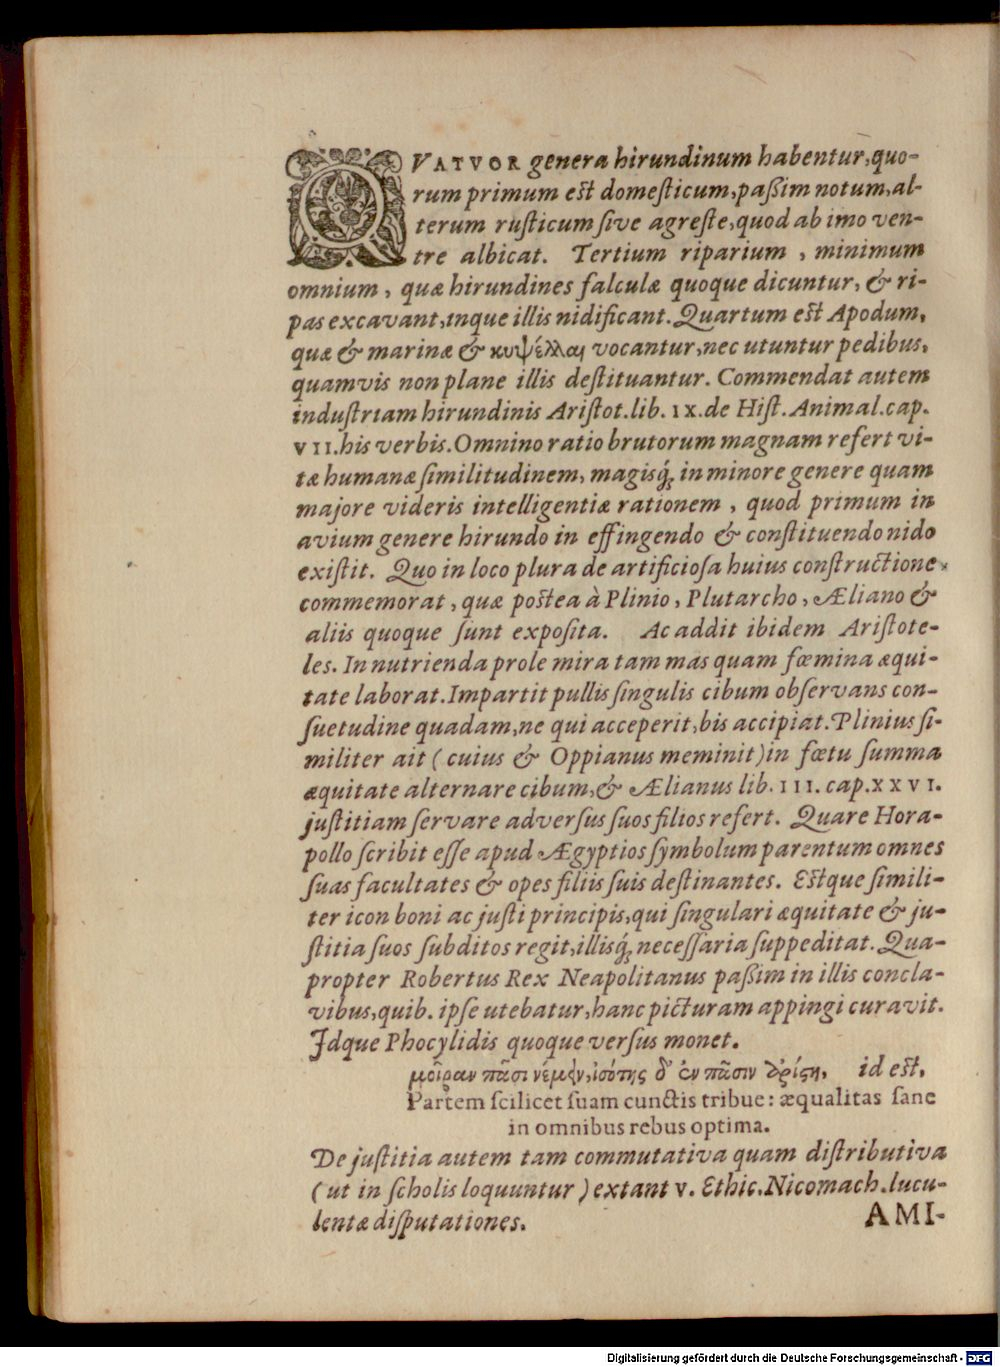 QVATVOR genera hirundinum habentur, quo-
rum primum est domesticum, paßim notum, al-
terum rusticum sive agreste, quod ab imo ven-
tre albicat. Tertium riparium, minimum
omnium, quæ hirundines falculæ quoque dicuntur, & ri-
pas excavant, inque illis nidificant. Quartum est Apodum,
quæ & marinæ & κυψέλλαι vocantur, nec utuntur pedibus,
quamvis non plane illis destituantur. Commendat autem
industriam hirundinis Aristot. lib. IX. de Hist. Animal. cap.
VII. his verbis. Omnino ratio brutorum magnam refert vi-
tæ humanæ similitudinem, magisq́; in minore genere quam
majore videris intelligentiæ rationem, quod primum in
avium genere hirundo in effingendo & constituendo nido
existit. Quo in loco plura de artificiosa huius constructione
commemorat, quæ postea à Plinio, Plutarcho, Æliano &
aliis quoque sunt exposita. Ac addit ibidem Aristote-
les. In nutrienda prole mira tam mas quam fœmina æqui-
tate laborat. Impartit pullis singulis cibum observans con-
suetudine quadam, ne qui acceperit, bis accipiat. Plinius si-
militer ait (cuius & Oppianus meminit) in fœtu summa
æquitate alternare cibum, & Ælianus lib. III. cap. XXVI.
justitiam servare adversus suos filios refert. Quare Hora-
pollo scribit esse apud Ægyptios symbolum parentum omnes
suas facultates & opes filiis suis destinantes. Estque simili-
ter icon boni ac justi principis, qui singulari æquitate & ju-
stitia suos subditos regit, illisq́; necessaria suppeditat. Qua-
propter Robertus Rex Neapolitanus paßim in illis concla-
vibus, quib. ipse utebatur, hanc picturam appingi curavit.
Idque Phocylidis quoque versus monet.
μοῖραν πᾶσι νέμειν, ἰσότης δ' ἐν πᾶσιν ἀρίστη, id est,
Partem scilicet suam cunctis tribue: æqualitas sane
in omnibus rebus optima.
De justitia autem tam commutativa quam distributiva
(ut in scholis loquuntur) extant v. Ethic. Nicomach. lucu-
lentæ disputationes.
AMI-
Digitalisierung gefördert durch die Deutsche Forschungsgemeinschaft - DFG